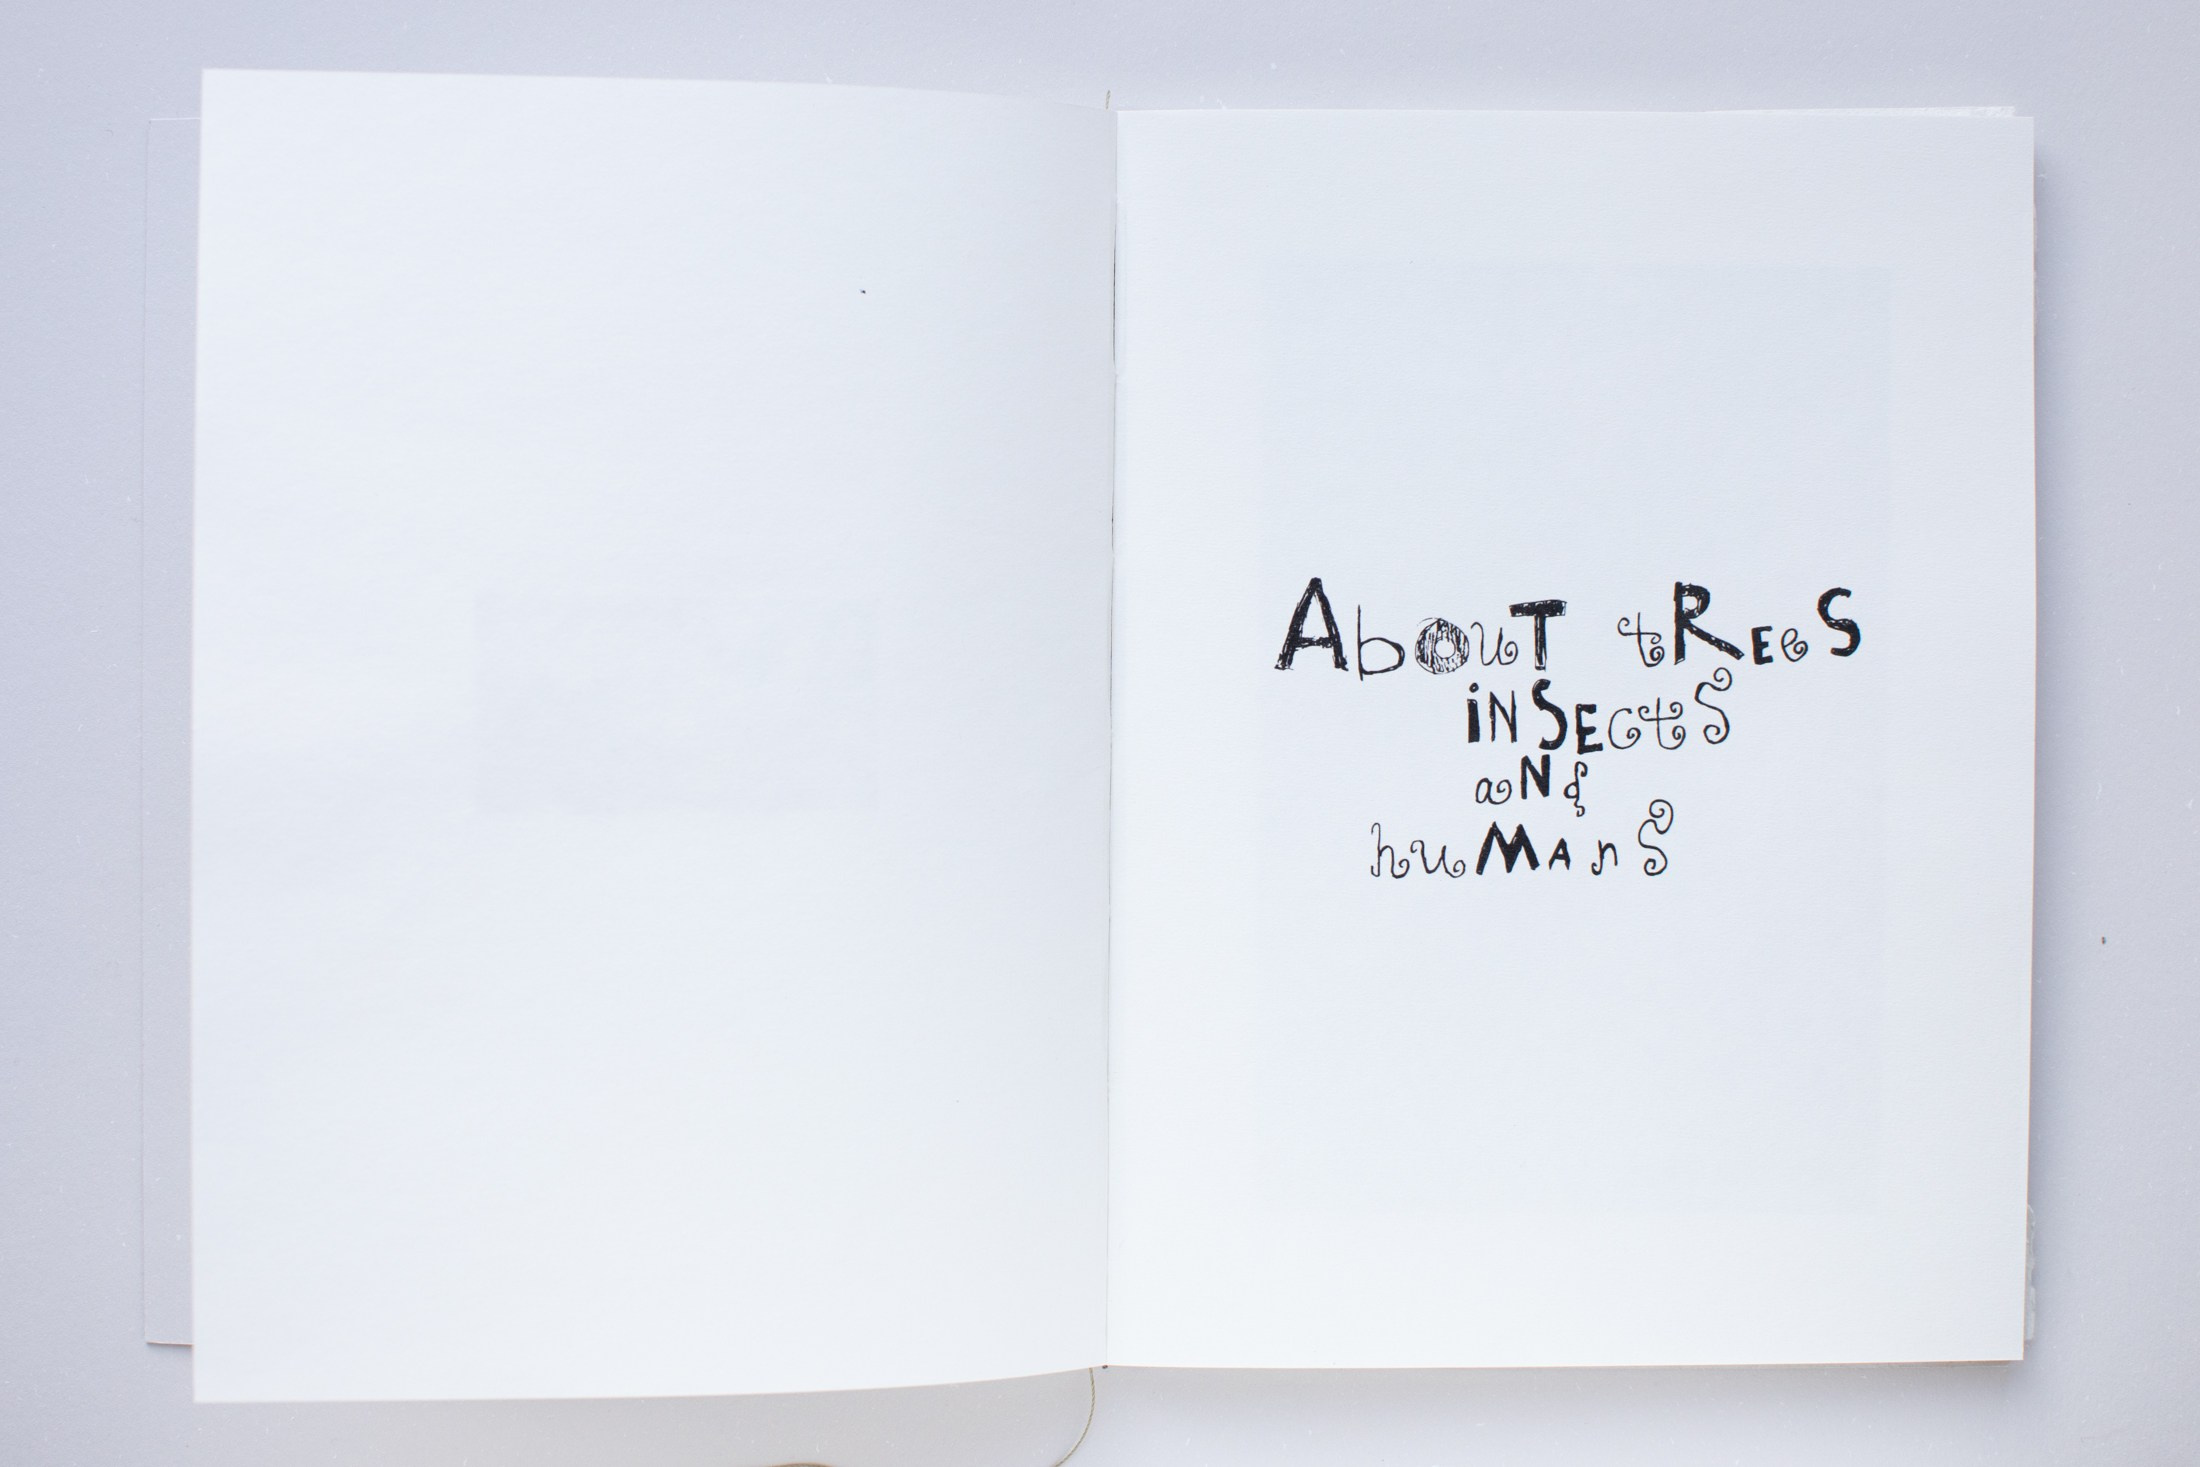 AbouT tREeS
iNSEctS
aNd
huMAnS